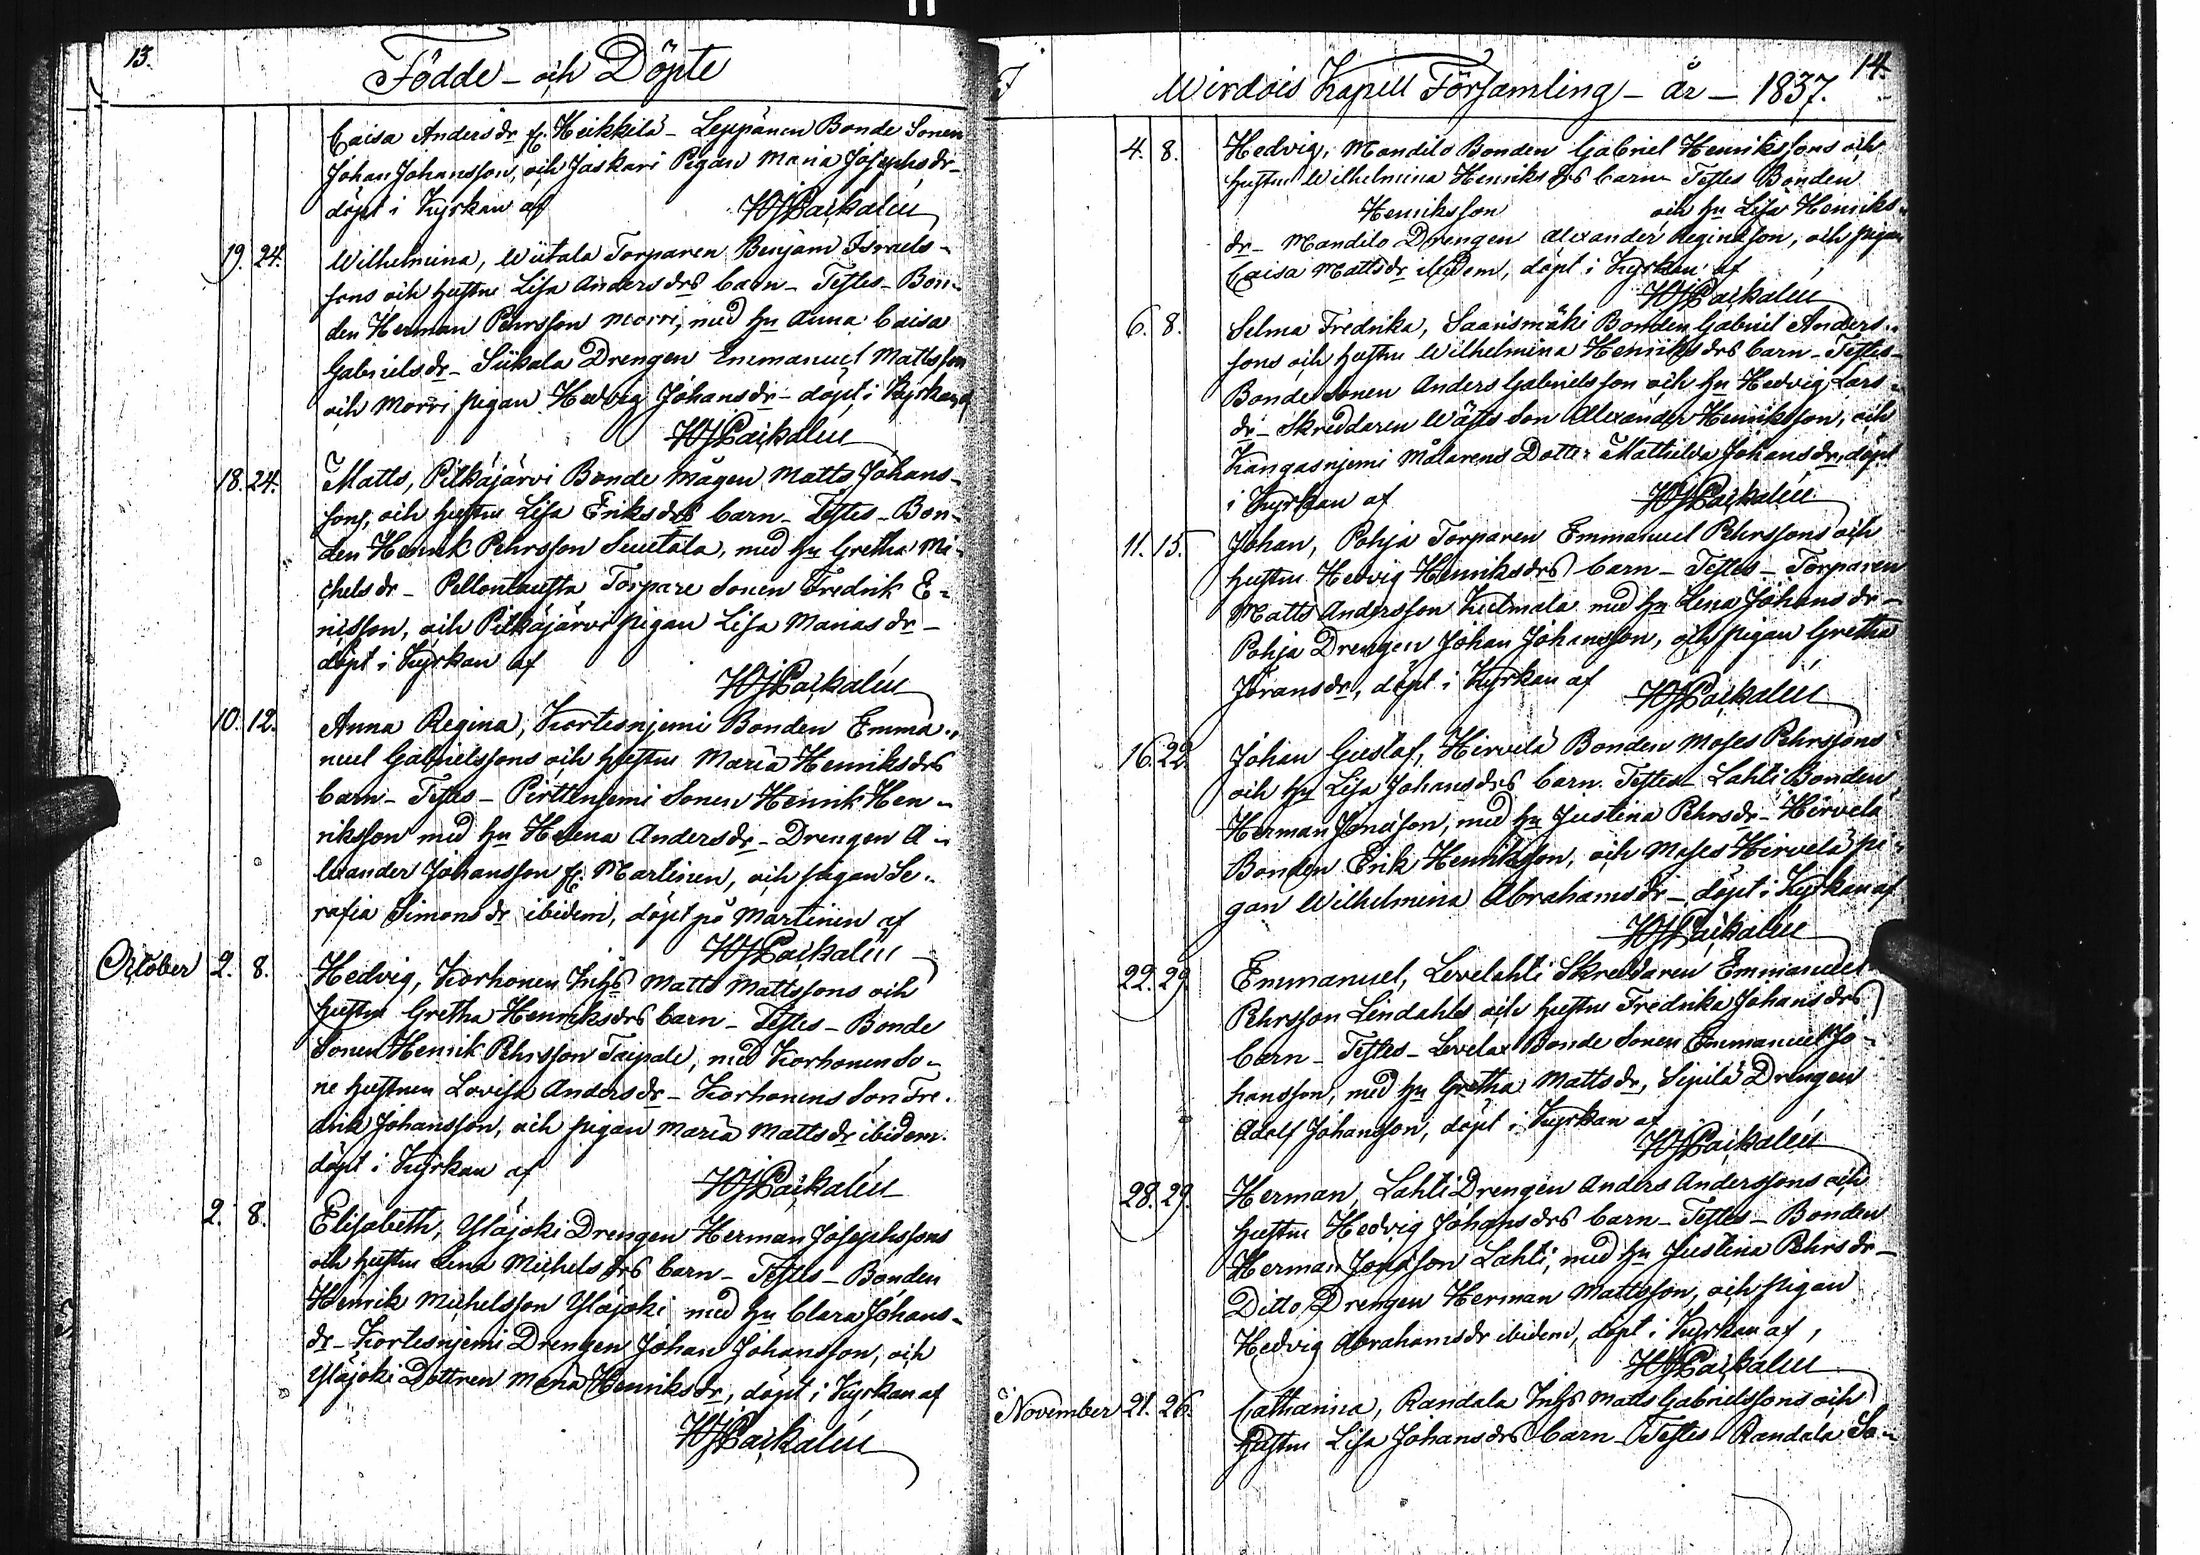 13.
Födde - och Döpte
Caisa Andersdr fr. Heikkilä - Leppänen Bonde Sonen
Johan Johansson, och Jaskari Pigan Maria Josephsdr -
döpt i Kyrkan af HJPaikalén
19. 24. Wilhelmina, Wiitala Torparen Benjam Israels-
sons och hustru Lisa Andersdrs barn - Testes - Bon-
den Herman Pehrsson Morri, med hu Anna Caisa
Gabrielsdr - Siikala Drengen Emmanuel Mattsson
och Morri pigan Hedvig Johansdr - döpt i Kyrkan af
HJPaikalén
18. 24. Matts, Pitkäjärvi Bonde Mågen Matts Johans-
sons, och hustru Lisa Eriksdrs barn - Testes - Bon-
den Henrik Pehrsson Suutala, med hu Gretha Mi-
chelsdr - Torpare Sonen Fredrik E-
nisson, och Pitkäjärvi pigan Lisa Mariasdr -
döpt i Kyrkan af HJPaikalén
10. 12. Anna Regina, Kortesnjemi Bonden Emma-
nuel Gabrielssons och hustru Maria Henriksdrs
barn - Testes - Pirttinjemi Sonen Henrik Hen-
riksson med hu Helena Andersdr - Drengen A-
lexander Johansson fr. Martinen, och pigan Se-
rafia Simonsdr ibidem, döpt på Martinen af
HJPaikalén
October 2. 8. Hedvig, Korhonen Inhs Matts Mattssons och
hustru Gretha Henriksdrs barn - Testes - Bonde
Sonen Henrik Pehrsson Taipale, med Korhonen So-
ne hustrun Lovisa Andersdr - Korhonens Son Fre-
drik Johansson, och pigan Maria Mattsdr ibidem.
döpt i Kyrkan af HJPaikalén
2. 8. Elisabeth, Yläjoki Drengen Herman Josephssons
och hustru Lena Michelsdrs barn - Testes - Bonden
Henrik Michelsson Yläjoki med hu Clara Johans-
dr - Kortesnjemi Drengen Johan Johansson, och
Yläjoki Dottren Maria Henriksdr, döpt i Kyrkan af
HJPaikalén
14.
I Wirdois Kapell Församling - år - 1837.
4. 8. Hedvig, Mondilo Bonden Gabriel Henrikssons och
hustru Wilhelmina Henriksdrs barn Testes Bonden
Henriksson och hu Lisa Henriks-
dr - Mondilo Drengen Alexander Reginasson, och pigan
Caisa Mattsdr ibidem, döpt i Kyrkan af
HJPaikalén
6. 8. Selma Fredrika, Saarismäki Bonden Gabriel Anders-
sons och hustru Wilhelmina Henriksdrs barn - Testes -
Bonde Sonen Anders Gabrielsson och hu Hedvig Lars-
dr - Skreddaren Wästs Son Alexander Henriksson, och
Kangasnjemi Målarens Dotter Mathilda Johansdr, döpt
i Kyrkan af HJPaikalén
11. 15. Johan, Pohja Torparen Emmanuel Pehrssons och
hustru Hedvig Henriksdrs barn - Testes - Torparen
Matts Andersson Kulmala med hu Lena Johansdr -
Pohja Drengen Johan Johansson, och pigan Gretha
Joransdr, döpt i Kyrkan af HJPaikalén
16. 22. Johan Gustaf, Hirvelä Bonden Moses Pehrssons
och hu Lisa Johansdrs barn. Testes - Lahti Bonden
Herman Jonasson, med hu Justina Pehrsdr - Hirvelä
Bonden Erik Henriksson, och Moses Hirvelä pi-
gan Wilhelmina Abrahamsdr - döpt i Kyrkan af
HJPaikalén
22. 29. Emmanuel, Levelahti Skreddaren Emmanuel
Pehrsson Lindahls och hustru Fredrika Johansdrs
barn - Testes - Levelax Bonde Sonen Emmanuel Jo-
hansson, med hu Gretha Mattsdr, Sipilä Drengen
Adolf Johansson, döpt i Kyrkan af
HJPaikalén
28. 29. Herman, Lahti Drengen Anders Anderssons och
hustru Hedvig Johansdrs barn - Testes - Bonden
Herman Jonasson Lahti, med hu Justina Pehrsdr -
Ditto Drengen Herman Mattsson, och pigan
Hedvig Abrahamsdr ibidem, döpt i Kyrkan af,
HJPaikalén
November 21. 26. Catharina, Randala Inhs Matts Gabrielssons och
hustru Lisa Johansdrs barn - Testes - Randala So-